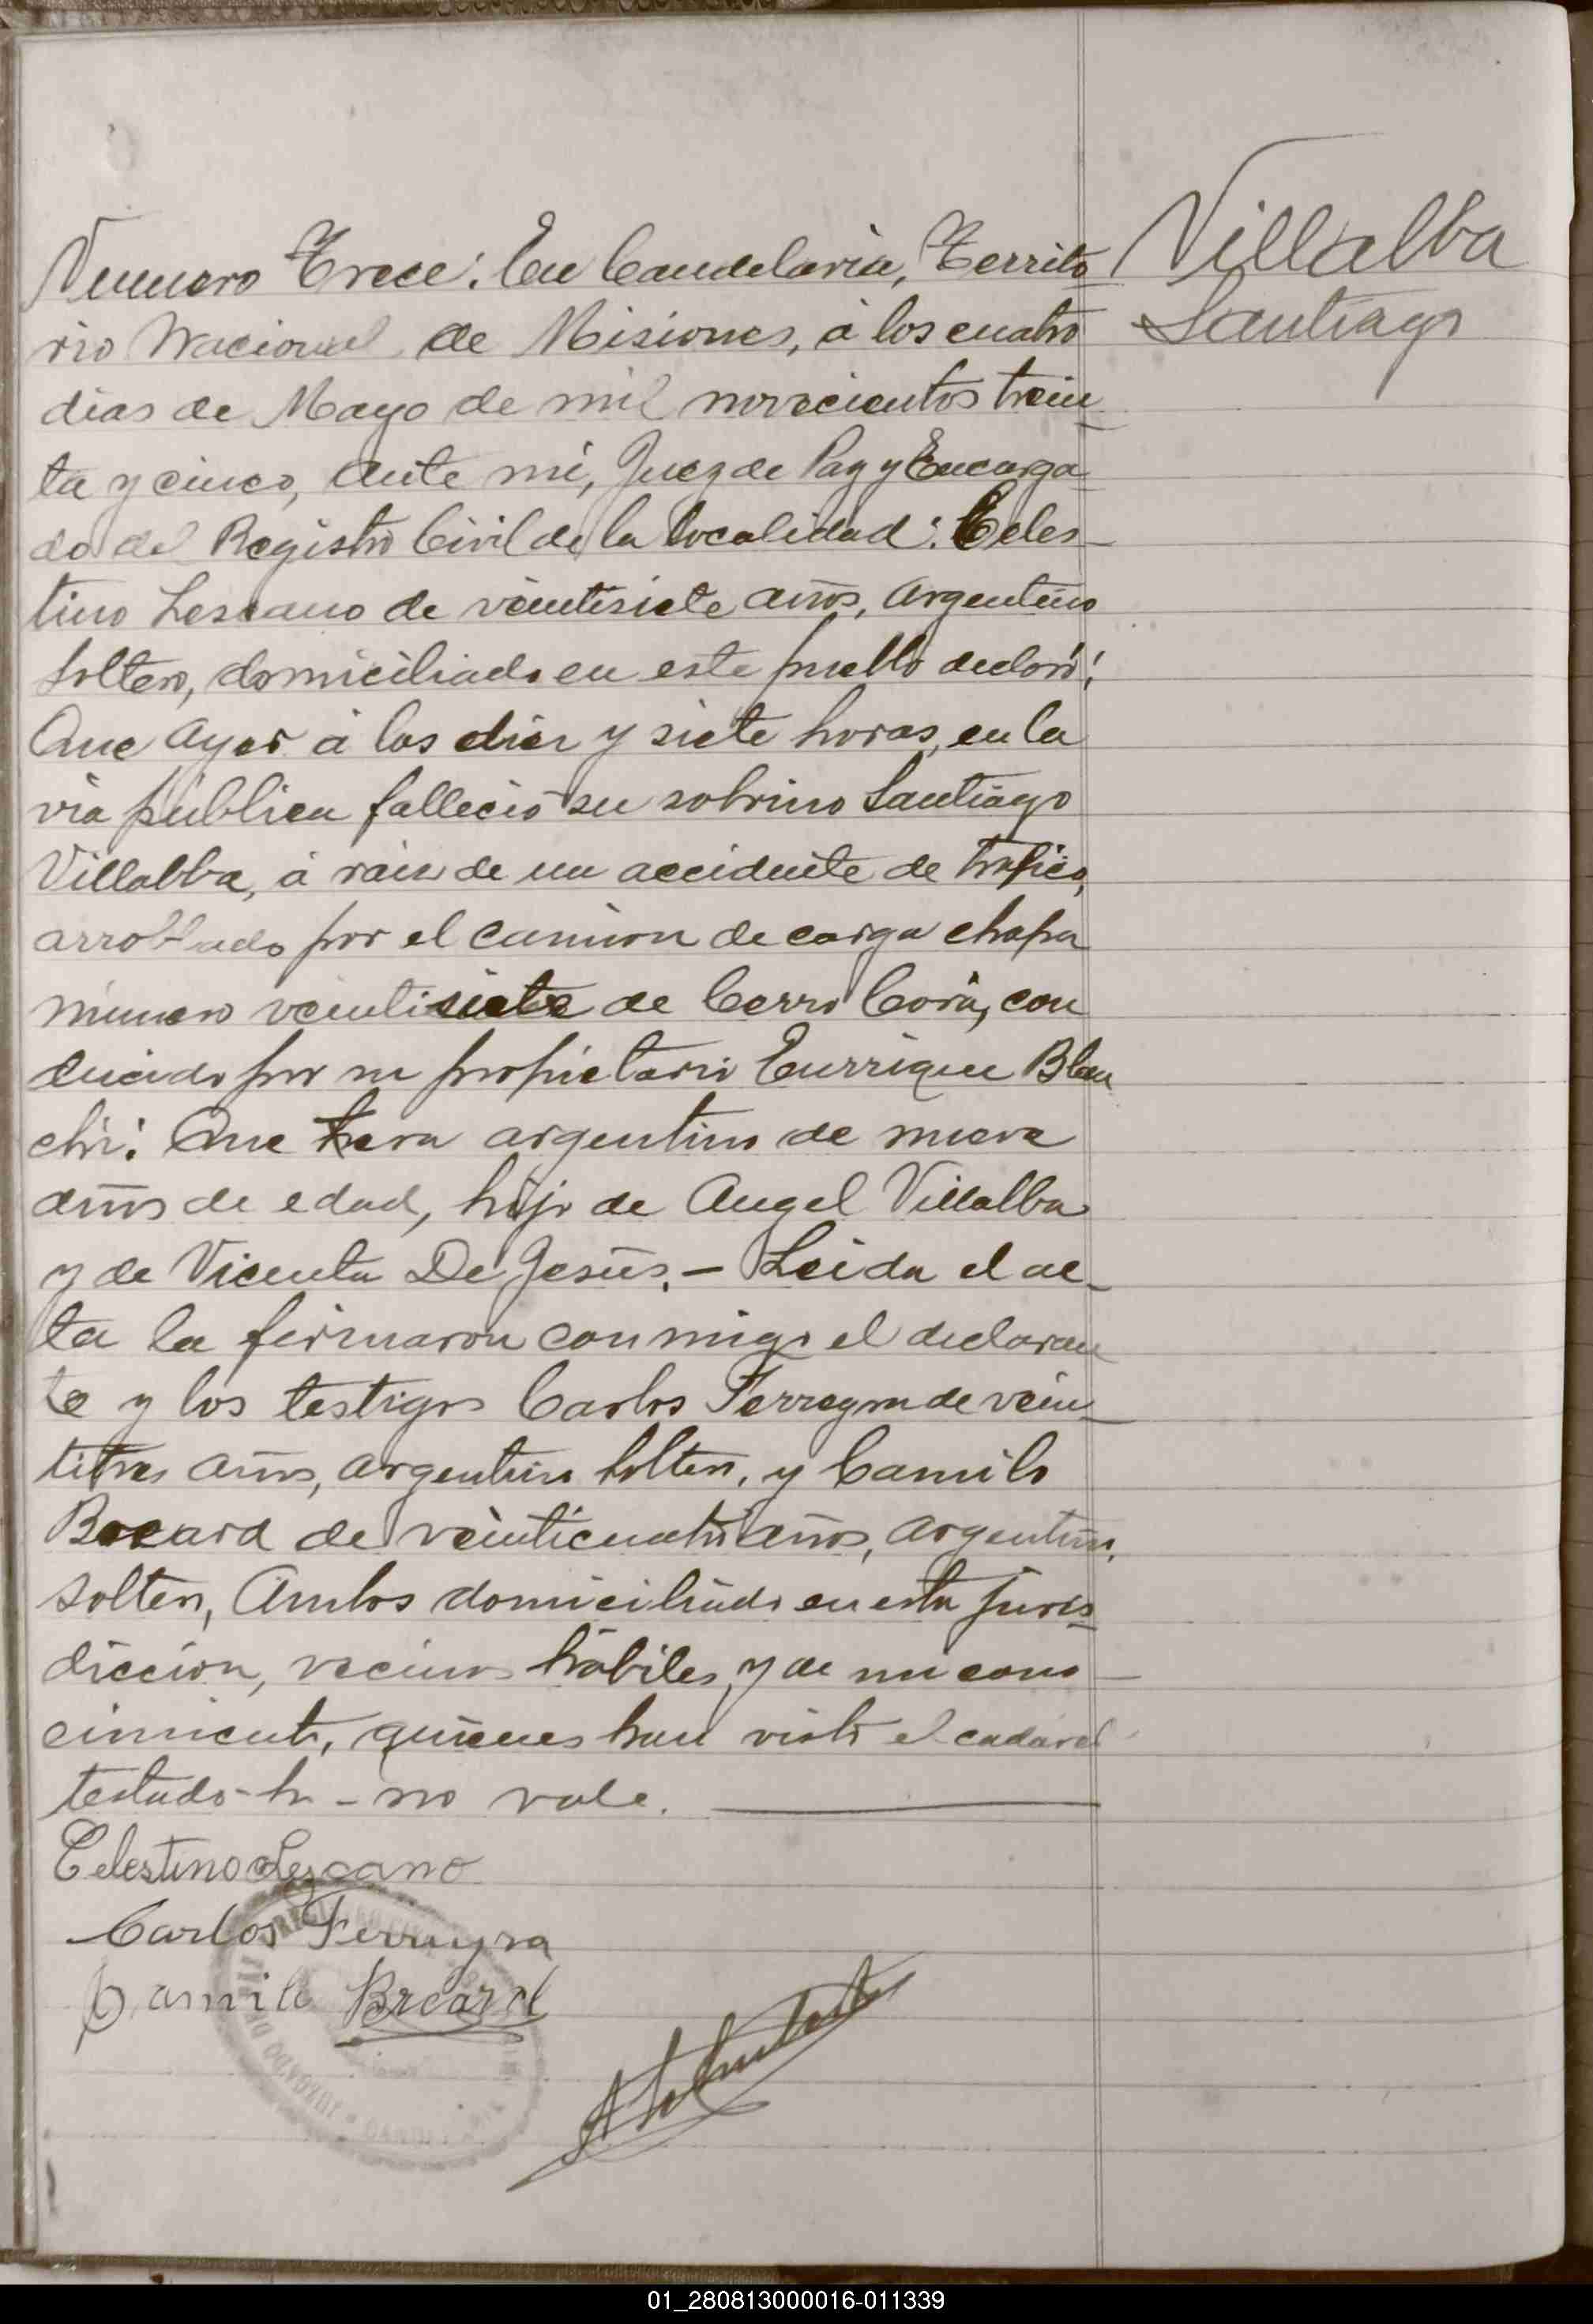 Numero Trece: En Candelaria, Territo
Villalba
rio Nacional de Misiones, á los cuatro
Santiago
dias de Mayo de mil novecientos trein
ta y cinco, ante mi, Juez de Paz y Encarga
do del Registro Civil de la localidad: Celes-
tino Lescano de veintisiete años, argentino
soltero, domiciliado en este pueblo declaró:
Que ayer á las diez y siete horas, en la
via pública falleció su sobrino Santiago
Villalba, á raiz de un accidente de trafico,
arrollado por el camion de carga chapa
número veintisiete de Cerro Corá, con
ducido por su propietario Enrrique Blan
chi: Que hera argentino de nueve
años de edad, hijo de Angel Villalba
y de Vicenta De Jesús.- Leida el ac-
ta la firmaron conmigo el declaran
te y los testigos Carlos Ferreyra de vein-
titres años, argentino soltero, y Camilo
de veinticuatro años, argentino,
soltero, Ambos domiciliado en esta juris-
diccion, vecinos hábiles, y de mi cono-
cimiento, quienes han visto el cadaver
testado-h-no vale.
Celestino Lezcano
Carlos Ferreyra
Camilo
REGISTRO
JUZGADO DE
01_280813000016-011339